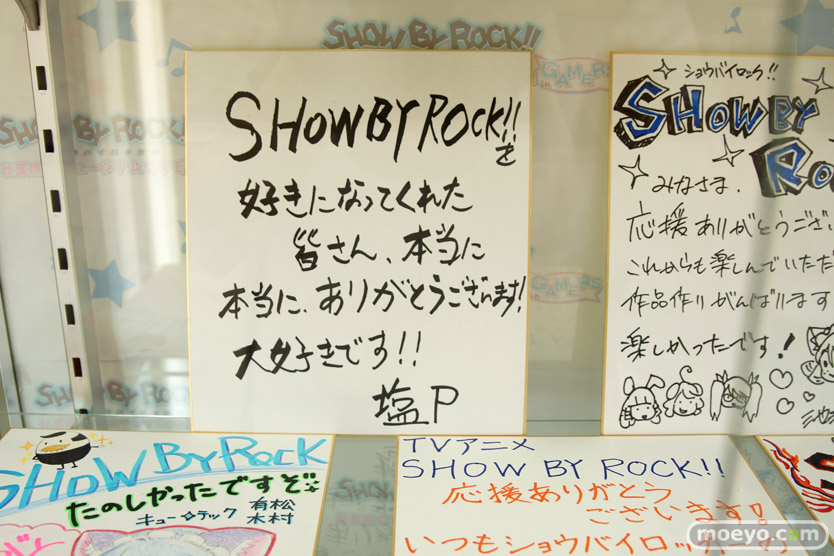 SHOW BY ROCK!!
SHOW BY ROCK!!を
好きになってくれた
皆さん、本当に
本当に、ありがとうございます!
大好きです!!
塩P
ショウバイロック!!
SHOW BY
Ro
みなさま、
応援ありがとうござい
これからも楽しんでいただ
作品作りがんばります
楽しかったです!
SHOW BY ROCK
たのしかったですぞ
キュー☆テック 有松
木村
TVアニメ
SHOW BY ROCK!!
応援ありがとう
ございます!
いつもショウバイロック
GAMERS
GAMERS
SHOW BY ROCK!!
moeyo.com